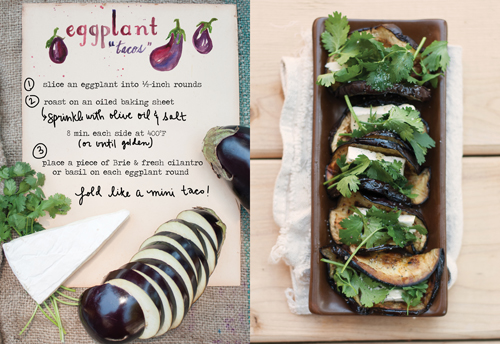 eggplant
"tacos"
1 slice an eggplant into ½-inch rounds
2 roast on an oiled baking sheet
↳ sprinkle with olive oil & salt
8 min. each side at 400°F
(or until golden)
3
place a piece of Brie & fresh cilantro
or basil on each eggplant round
fold like a mini taco!